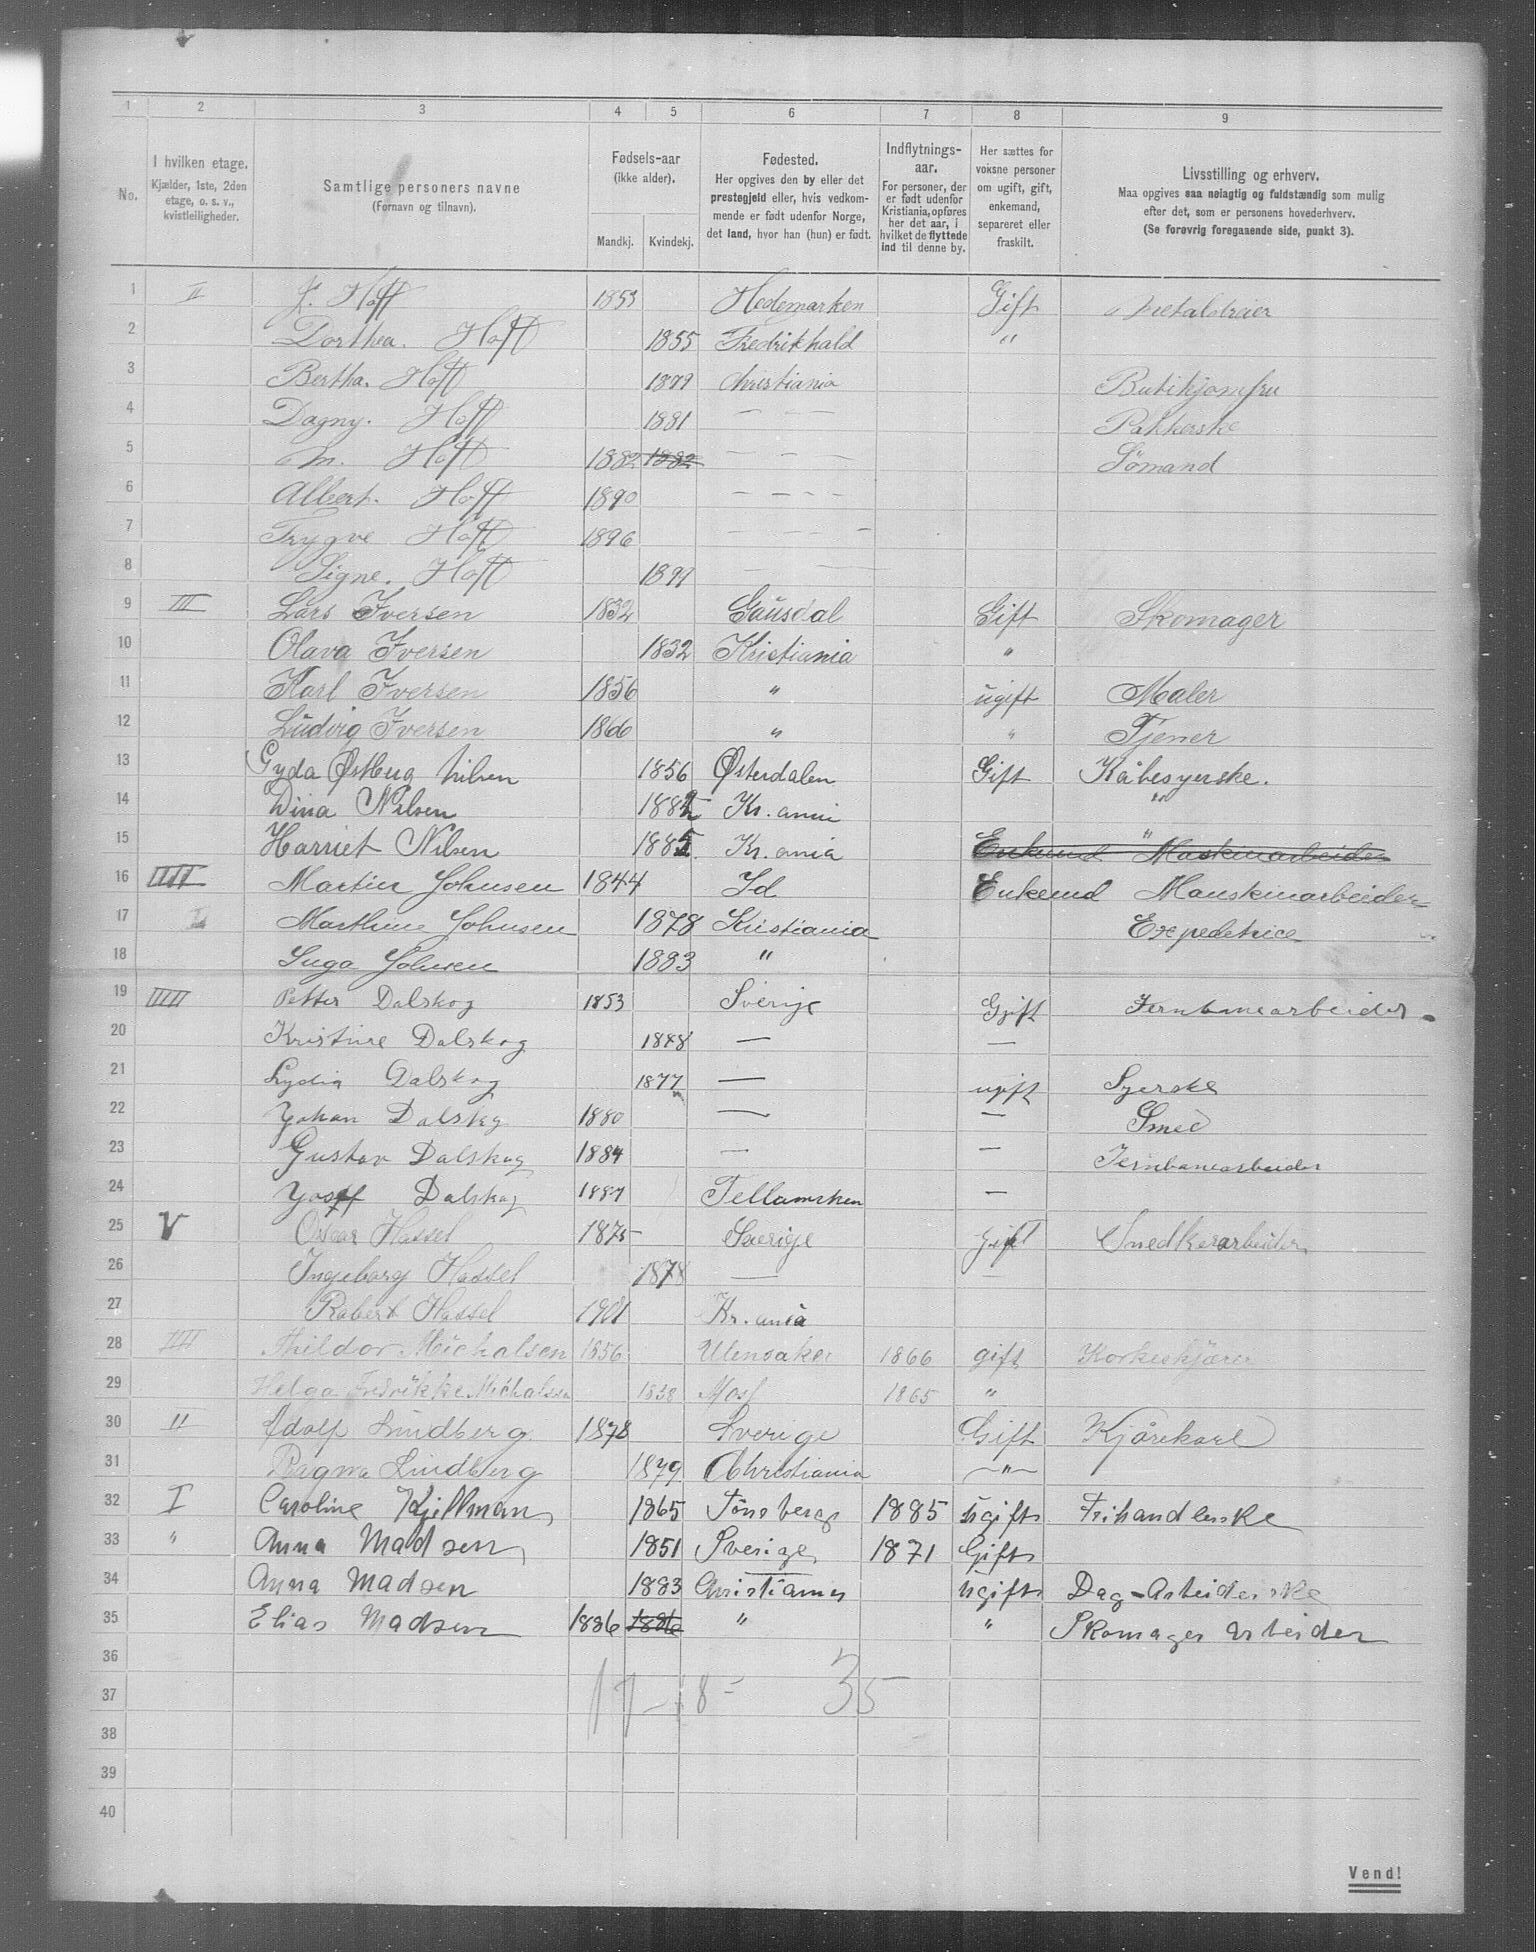 1 2 3 4 5 6 7 8 9
No.
I hvilken etage.
Kjælder, 1ste, 2den
etage, o. s. v.,
kvistleiligheder.
Samtlige personers navne
(Fornavn og tilnavn).
Fødsels-aar
(ikke alder).
Mandkj. Kvindekj.
Fødested.
Her opgives den by eller det
prestegjeld eller, hvis vedkom-
mende er født udenfor Norge,
det land, hvor han (hun) er født.
Indflytnings-
aar.
For personer, der
er født udenfor
Kristiania, opføres
her det aar, i
hvilket de flyttede
ind til denne by.
Her sættes for
voksne personer
om ugift, gift,
enkemand,
separeret eller
fraskilt.
Livsstilling og erhverv.
Maa opgives saa nøiagtig og fuldstændig som mulig
efter det, som er personens hovederhverv.
(Se forøvrig foregaaende side, punkt 3).
1 II Hoff 1853 Hedemarken Gift
2 Dorthea. Hoff 1855 Fredrikhald "
3 Bertha. Hoff 1879 Christiania Butikjomfru
4 Dagny. Hoff 1881 — — Pakkerske
5 M. Hoff 1882 1882 — — — Sömand
6 Albert. Hoff 1890 — — — —
7 Trygve Hoff 1896 — — — —
8 Signe. Hoff 1899 — — —
9 III Lars Iversen 1832 Gausdal Gift Skomager
10 Olava Iversen 1832 Kristiania "
11 Karl Iversen 1856 " ugift Maler
12 Ludvig Iversen 1866 " " Tjener
13 Gyda Østberg Nilsen 1856 Østerdalen Gift Kåbesyerske.
14 Dina Nilsen 1882 Kr. ania "
15 Harriet Nilsen 1885 Kr. ania Enkemd " Maskinarbeider
16 IIII Martin Johnsen 1844 Id Enkemd Manskinarbeider
17 I Marthine Johnsen 1878 Kristiania Expeditrice
18 Inga Johnsen 1883 "
19 IIII Petter Dalskog 1853 Sverige Gift Jernbanearbeider
20 Kristine Dalskog 1848 — —
21 Lydia Dalskog 1877 — ugift Syerske
22 Johan Dalskog 1880 — — Smed
23 Gustav Dalskog 1884 — — Jernbanearbeider
24 Dalskog 1887 Tellamrken —
25 V Oscar Hassel 1875 Sverige gift Snedkerarbeider
26 Ingeborg Hassel 1878 — —
27 Robert Hassel 1901 Kr. ania
28 III Thildor Michalsen 1856 Ulensaker 1866 gift Korkeskjærer
29 Helga Fredrikke Michalsen 1838 Moss 1865 "
30 II Adolf Lindberg 1878 Sverige Gift Kjørekarl
31 Ragna Lindberg 1879 Christiania — " —
32 I Caroline Kjellman 1865 Tönsberg 1885 ugift Frihandlerske
33 " Anna Madsen 1851 Sverige 1871 Gift
34 Anna Madsen 1883 Christiania ugift Dag-Arbeiderske
35 Elias Madsen 1886 1886 " " Skomager Arbeider
36
37 17 - 18 = 35
38
39
40
Vend!